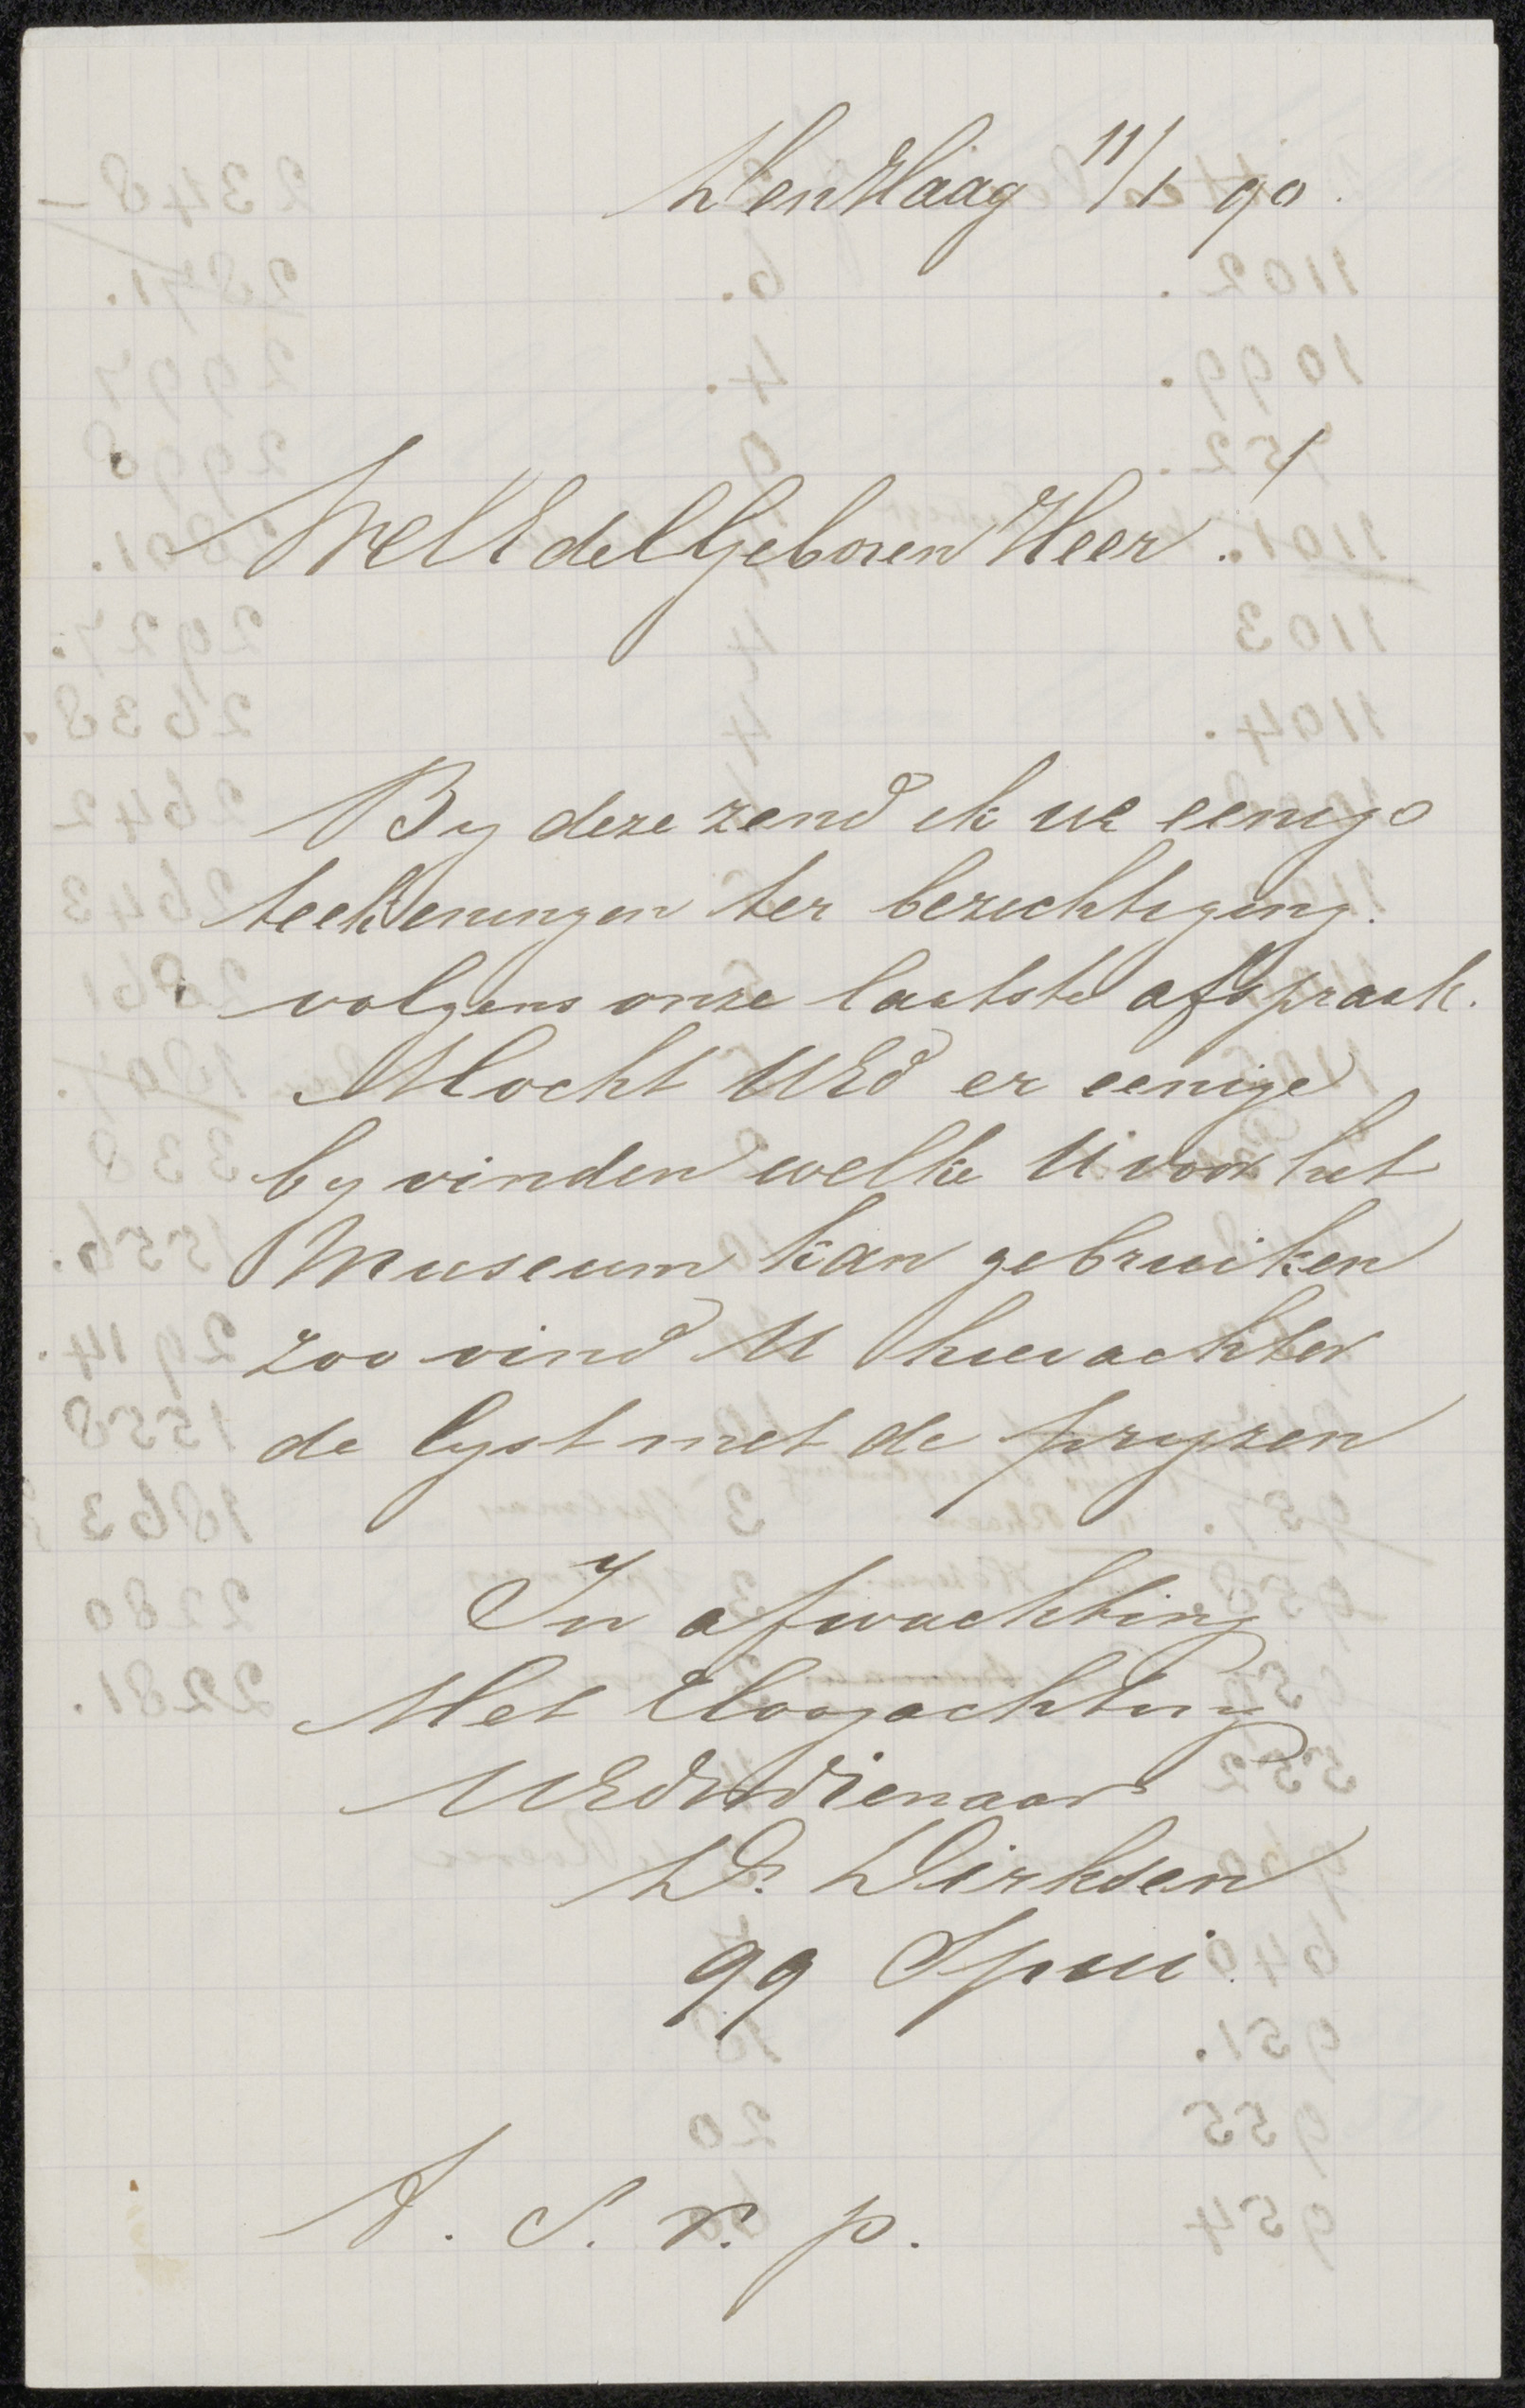 Den Haag 11/1 90.
WelEdelGeboren Heer!
By deze zend ik UE eenige
teekeningen ter bezichtiging.
volgens onze laatste afspraak.
Mocht UEd er eenige
by vinden welke U voor het
Museum kan gebruiken
zoo vind U hier achter
de lyst met de pryzen
In afwachting
Met Hoogachting
UEdwdienaar
D. Dirksen
99 Spui.